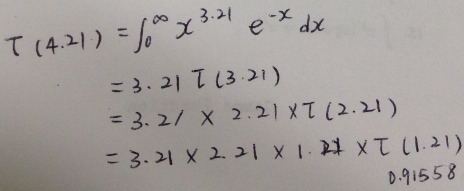 τ(4.21) = ∫₀^∞ x^3.21 e^-x dx
= 3.21 τ(3.21)
= 3.21 × 2.21 × τ(2.21)
= 3.21 × 2.21 × 1.21 × τ(1.21)
0.91558